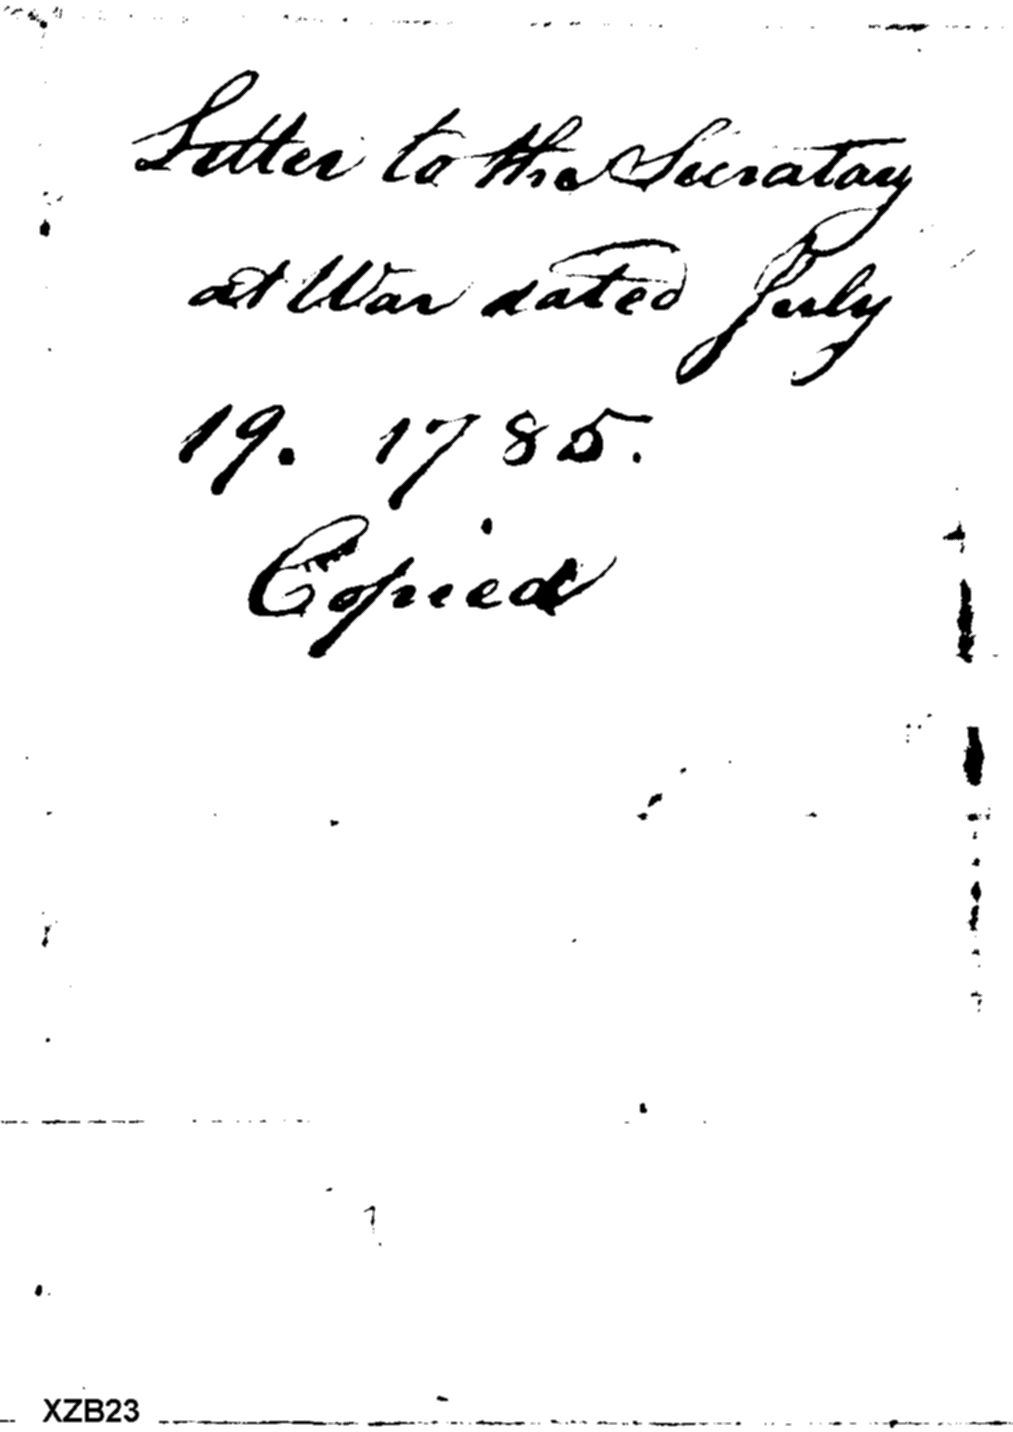 Letter to the Secratary
at War dated July
19. 1785.
Copied
XZB23